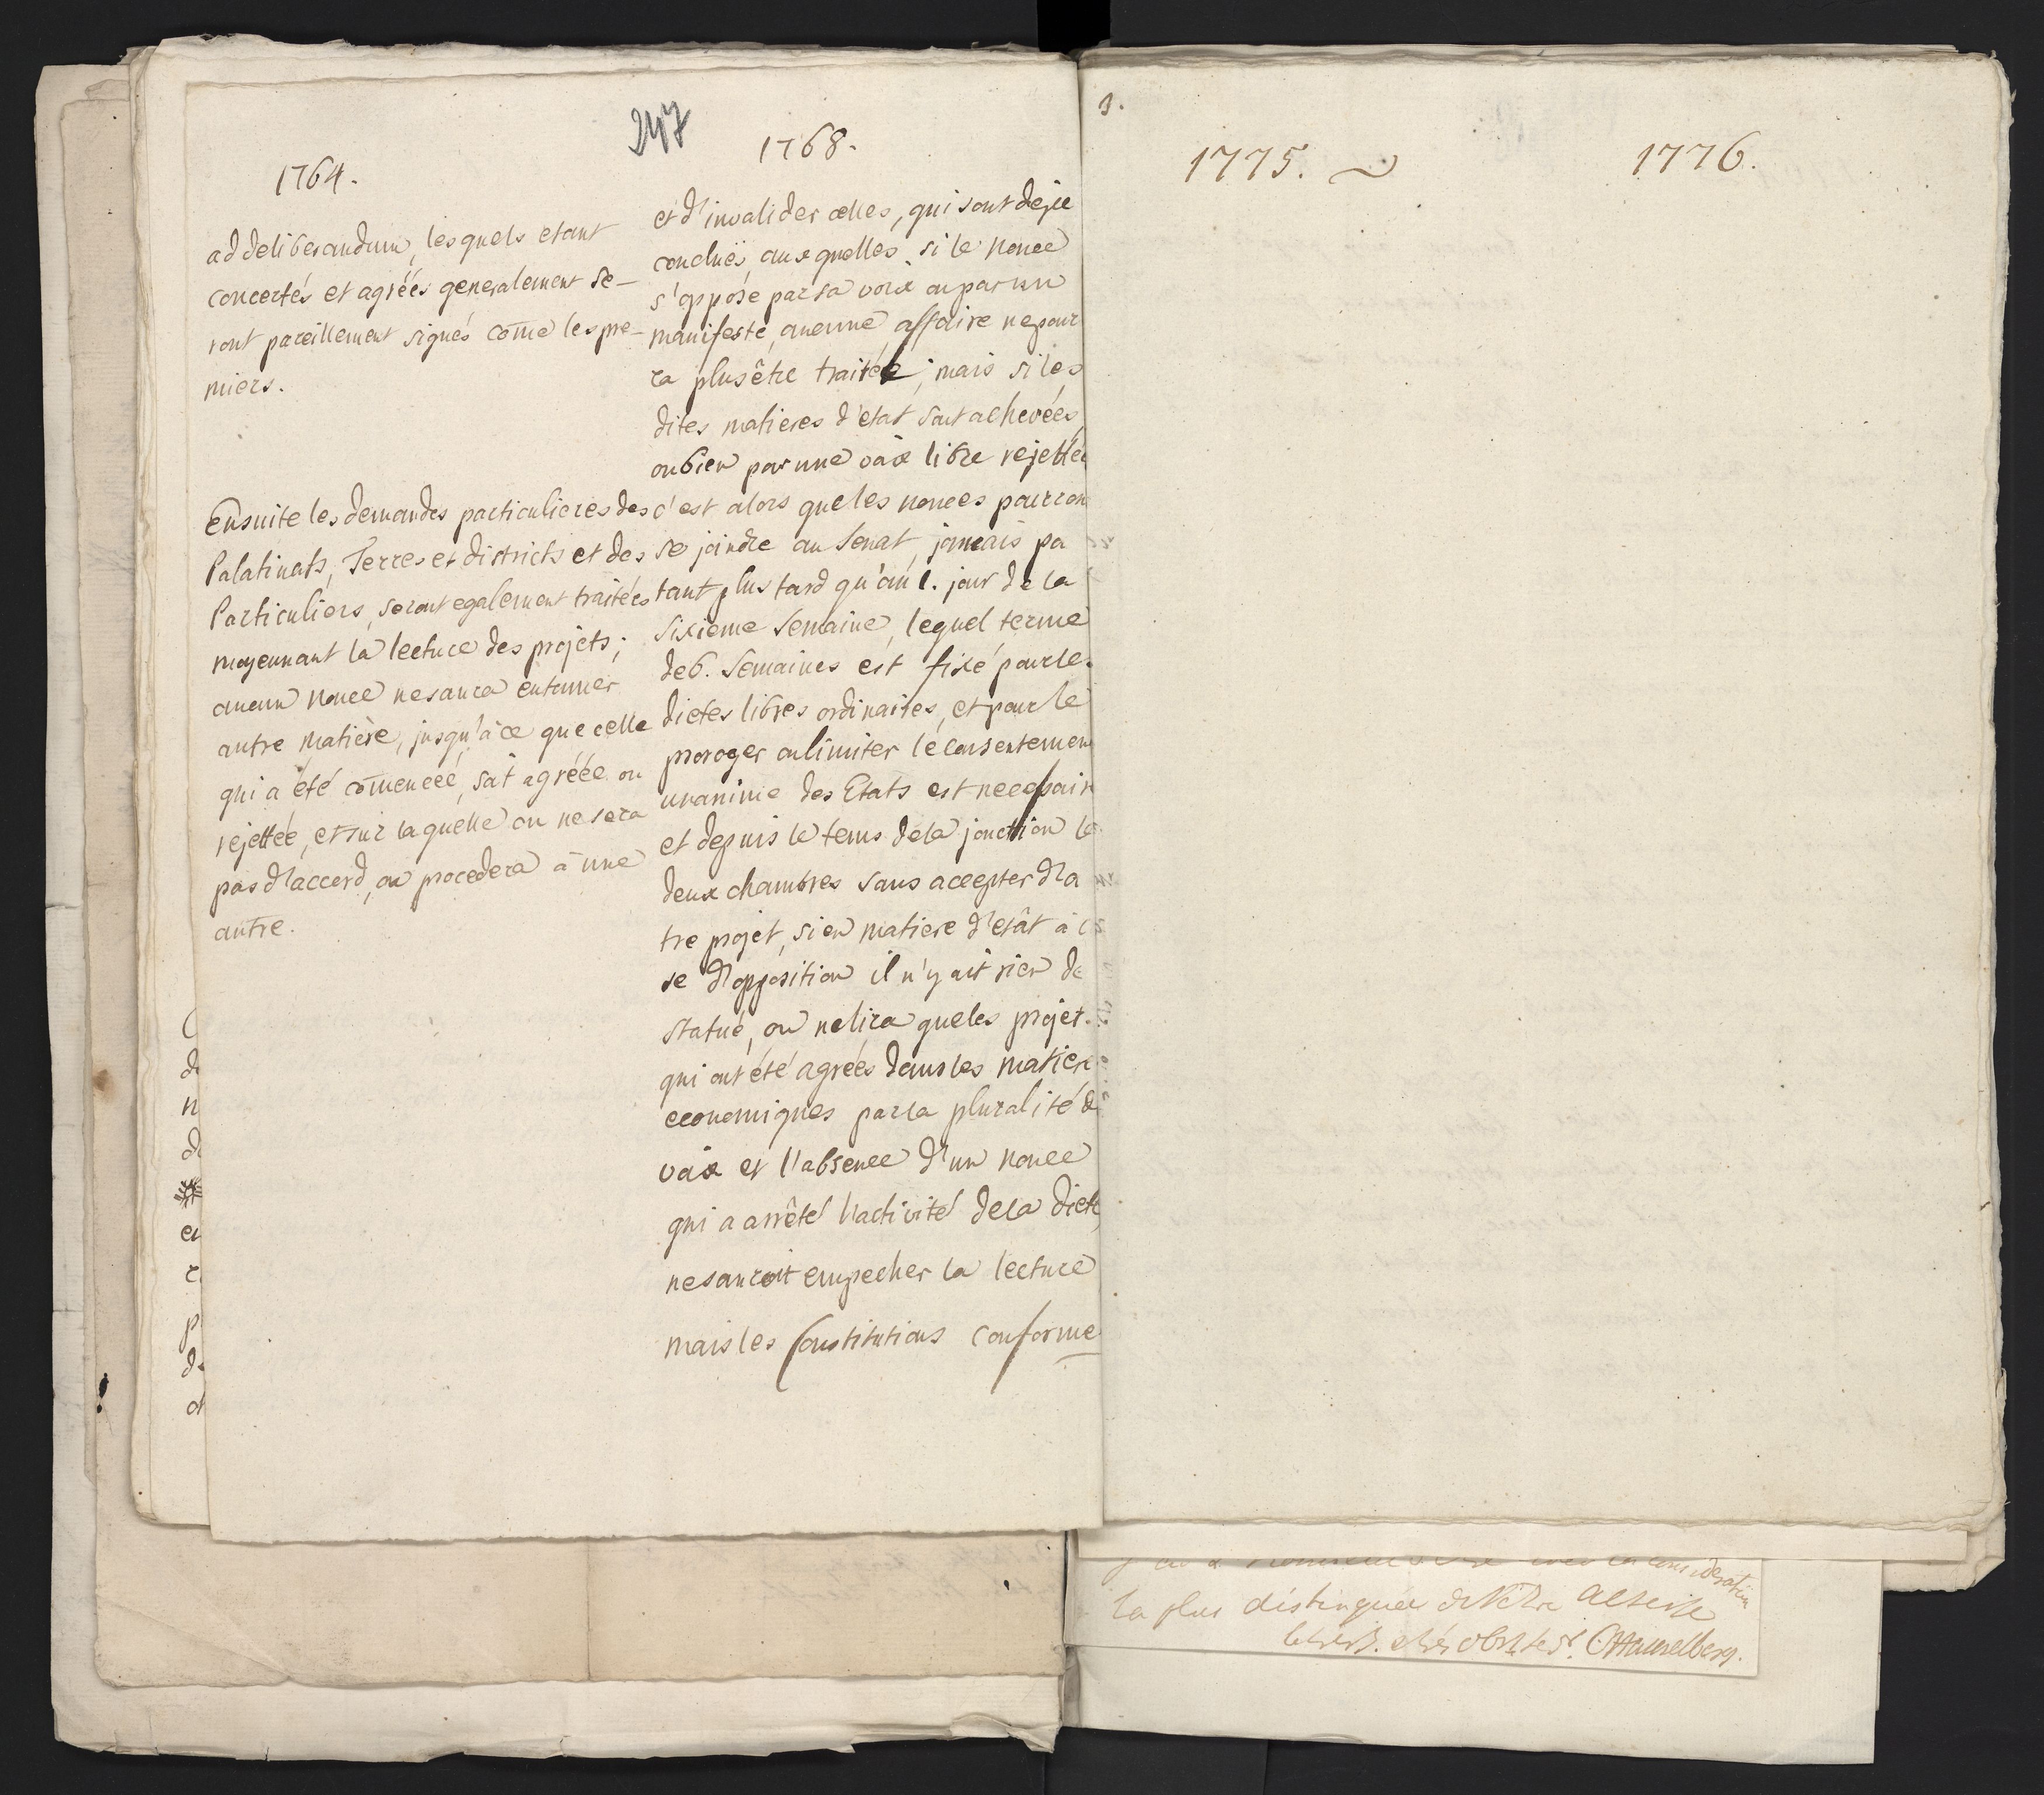 247
1764.
ad deliberandum, lesquels etant
concertés et agréés generalement se-
ront pareillement signés come les pre-
miers.
Ensuite les demandes particulieres des
Palatinats, Terres et districts et des
Particuliers, seront egalement traitées
moyennant la lecture des projets;
aucun nonce ne saura entamer
autre matière, jusqu'à ce que celle
qui a été comencée, soit agréée ou
rejettée, et sur laquelle on ne sera
pas d'accord, on procedera à une
autre.
1768.
et d'invalider celles, qui sont deja
conclues, auxquelles si le nonce
s'oppose par sa voix ou par un
manifeste, aucune affaire ne pour
ra plus être traitée; mais si les
dites matieres d'etat sont achevées,
ou bien par une voix libre rejettée
c'est alors que les nonces pourron
se joindre au Senat, jamais pa
tant plus tard qu'au 1. jour de la
sixieme Semaine, lequel terme
de 6. Semaines est fixé pour le
dietes libres ordinaires, et pour le
proroger ou limiter le consentemen
unanime des Etats est necessair
et depuis le tems de la jonction le
deux chambres sans accepter d'a
tre projet, si en matiere d'etât à c
se d'opposition il n'y ait rien de
statué, on ne lira que les projet
qui ont été agréés dans les matier
economiques par la pluralité d
voix et l'absence d'un nonce
qui a arrêté l'activité de la Diete
ne sauroit empecher la lecture
mais les Constitutions conforme
3.
1775.
1776.
consideration
la plus distinguée de Votre Altesse